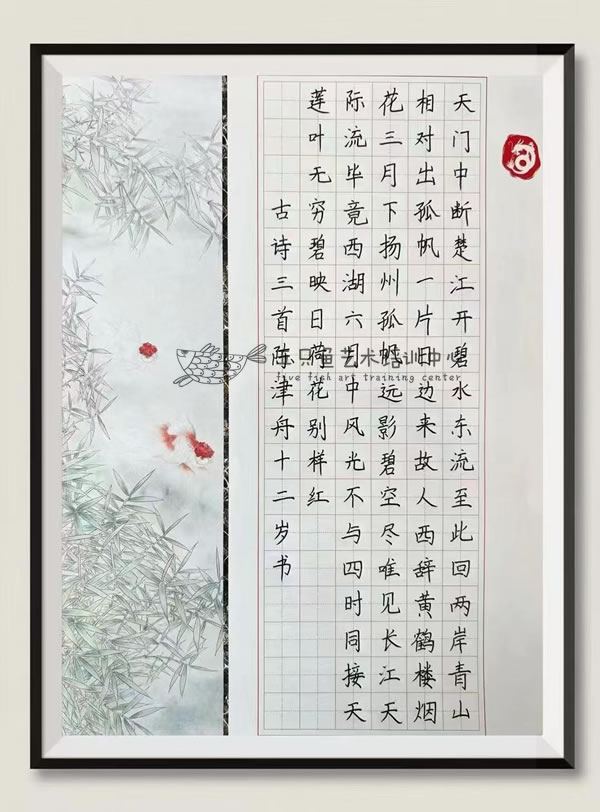 天门中断楚江开碧水东流至此回两岸青山
相对出孤帆一片日边来故人西辞黄鹤楼烟
花三月下扬州孤帆远影碧空尽唯见长江天
际流毕竟西湖六月中风光不与四时同接天
莲叶无穷碧映日荷花别样红
古诗三首陈津舟十二岁书
五只鱼艺术培训中心
five fish art training center